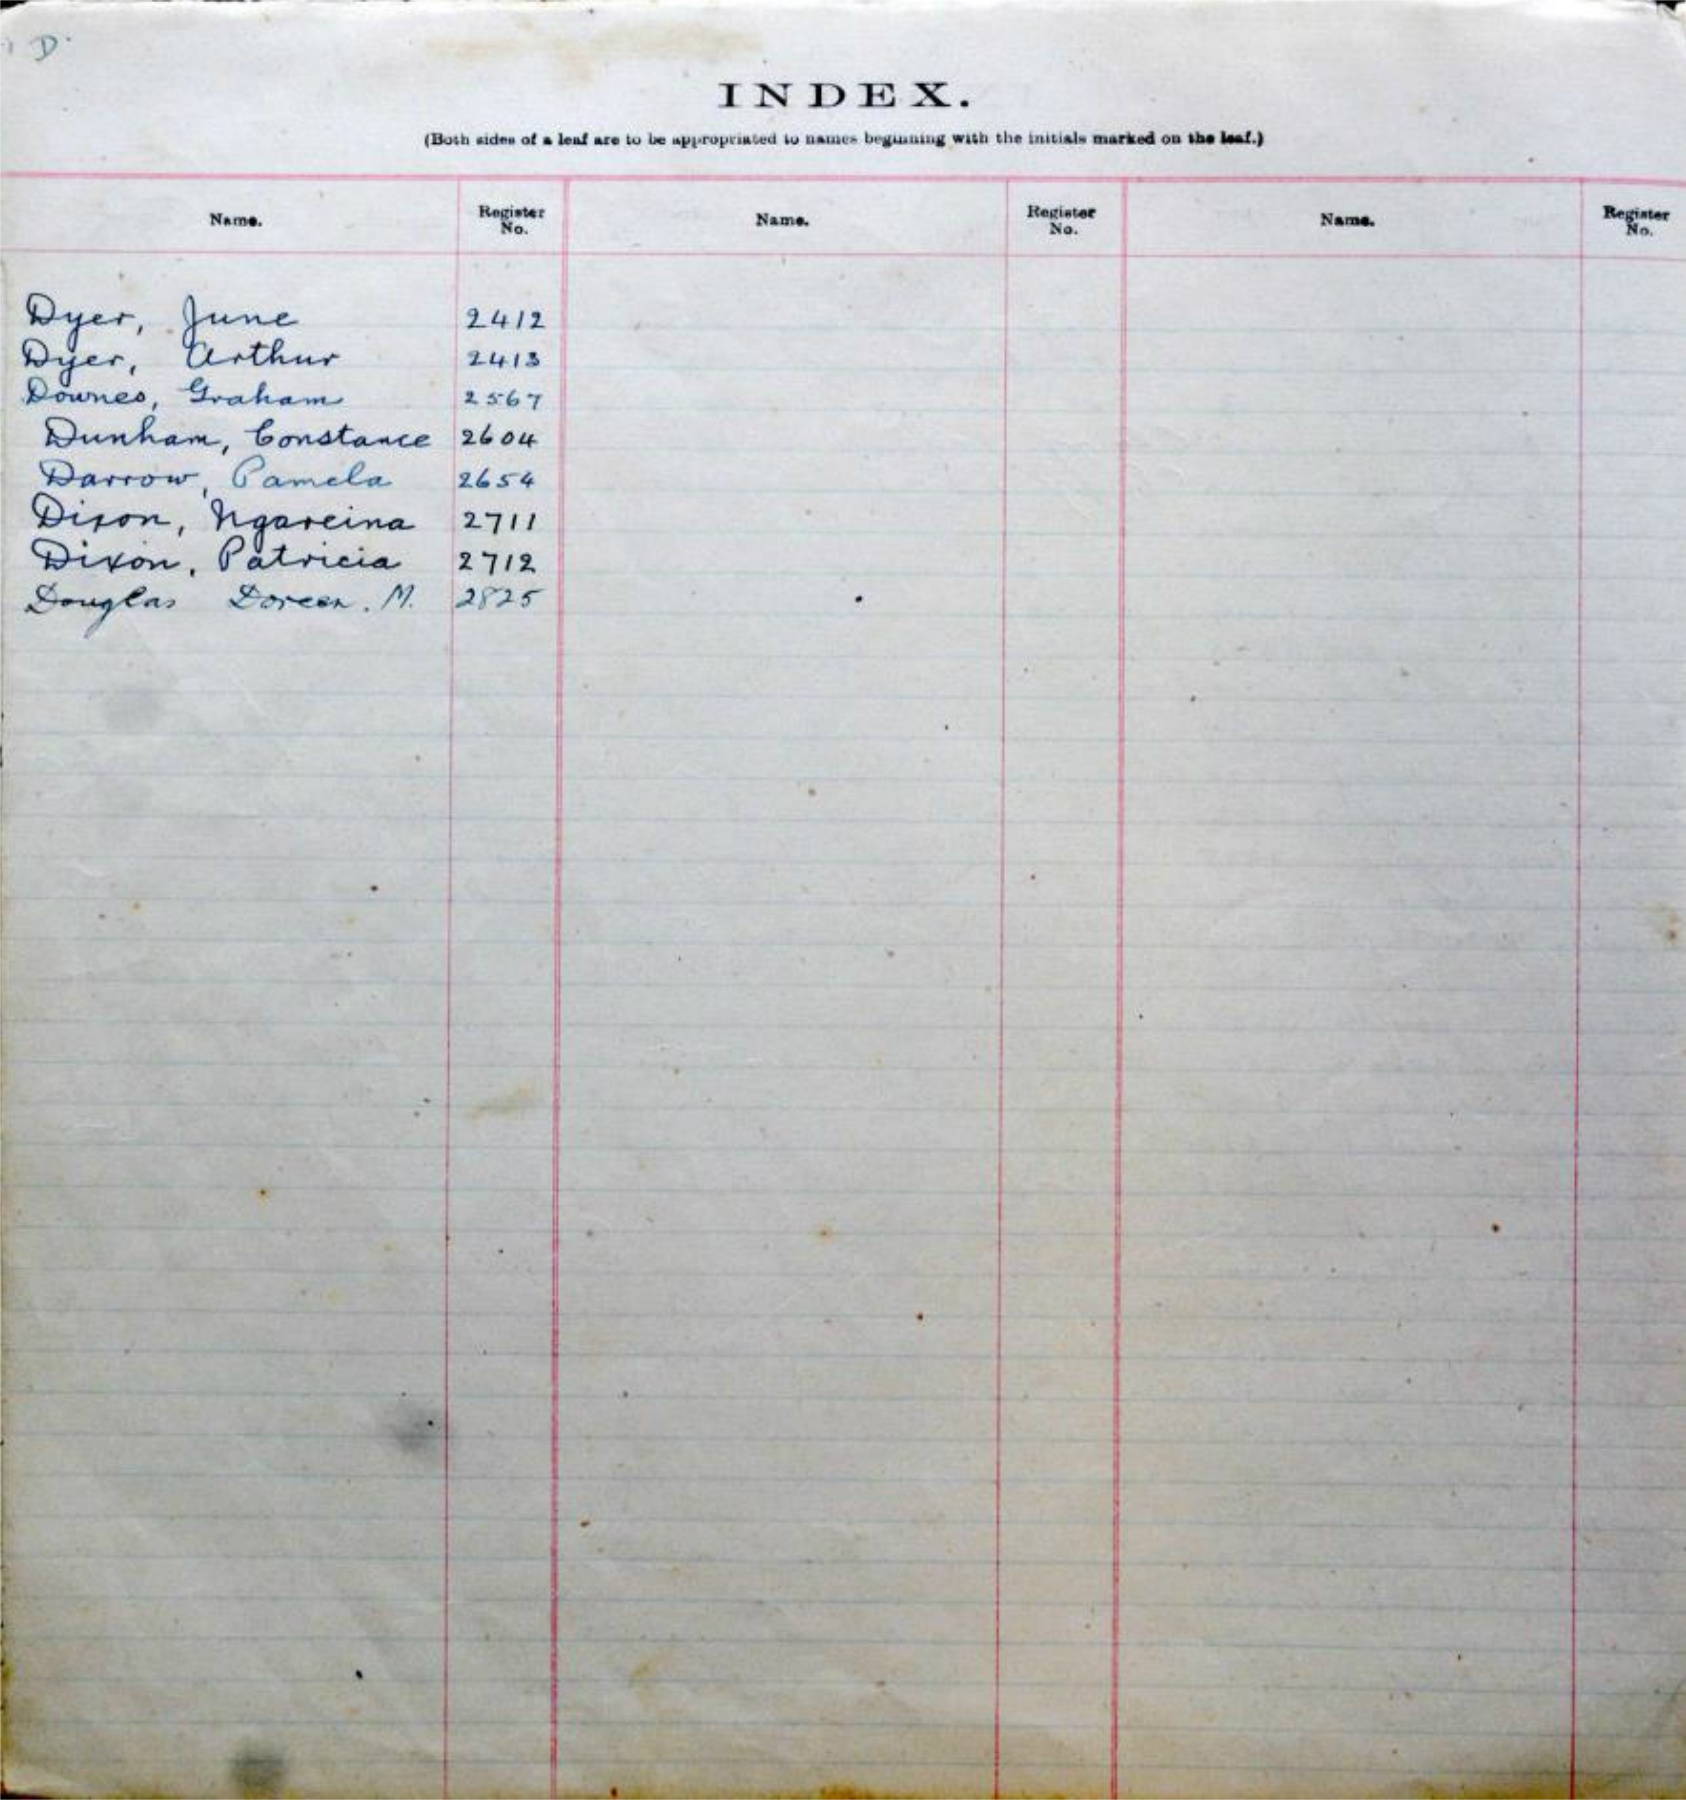 D.
INDEX.
(Both sides of a leaf are to be appropriated to names beginning with the initials marked on the leaf.)
Name. Register No. Name. Register No. Name. Register No.
Dyer, June 2412
Dyer, Arthur 2413
Downes, Graham 2567
Dunham, Constance 2604
Darrow, Pamela 2654
Dixon, Ngareina 2711
Dixon, Patricia 2712
Douglas Doreen. M. 2825